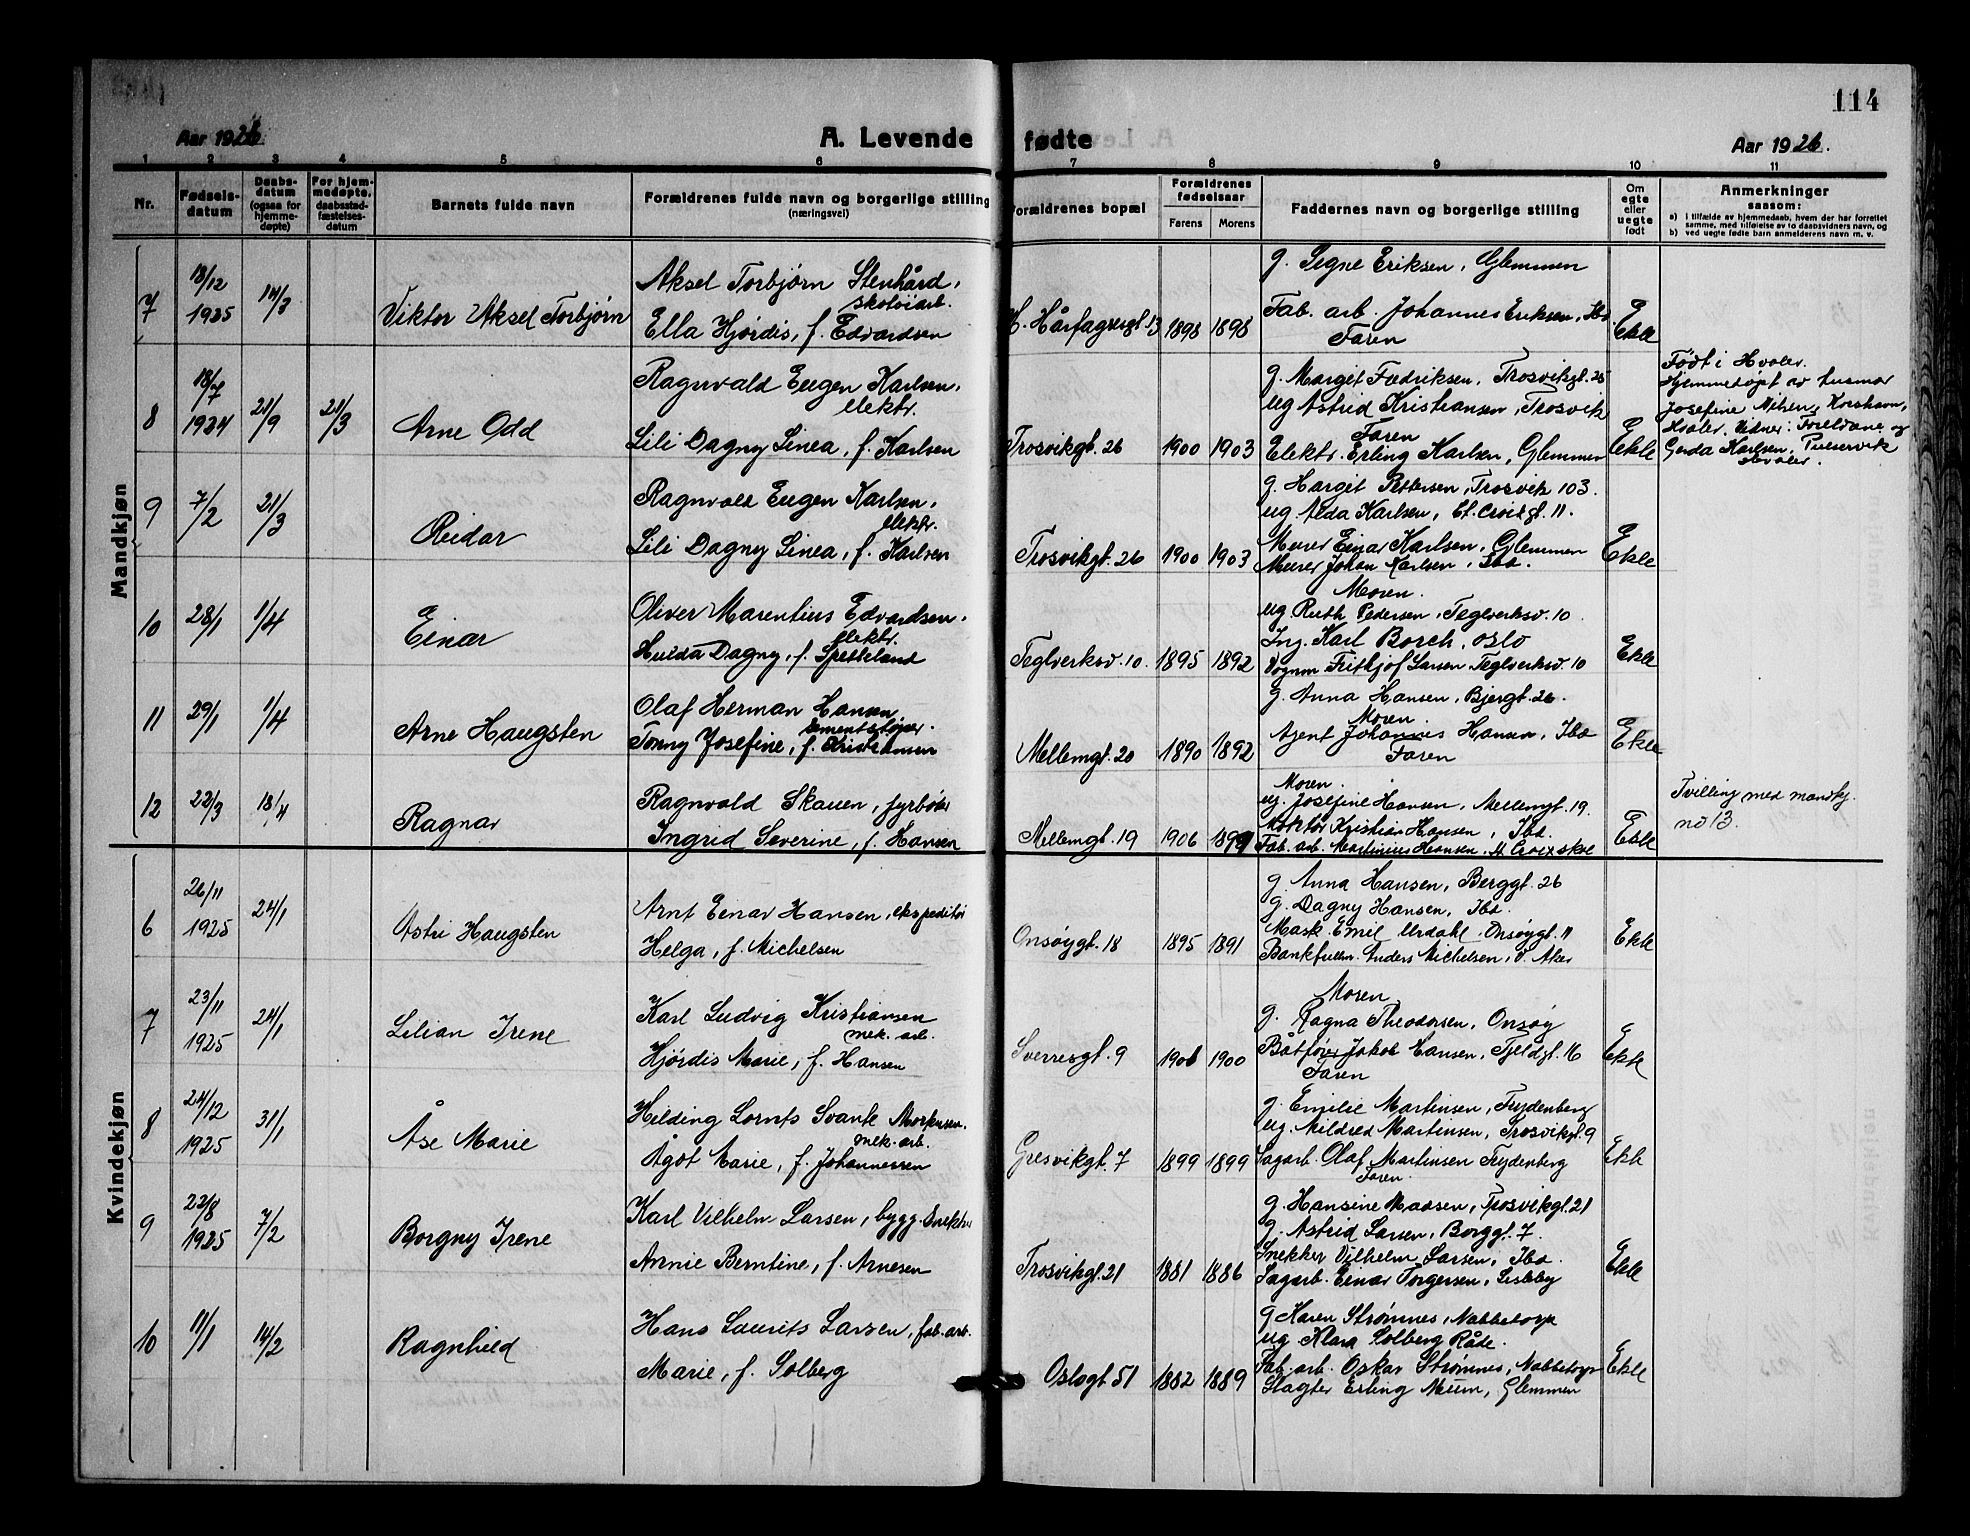 114
Aar 1926
A. Levende fødte
Aar 1926.
1 2 3 4 5 6 7 8 9 10 11
Nr.
Fødselsdatum
Daabsdatum (ogsaa for hjemmedøpte)
For hjemmedøpte, daabsstadfæstelsesdatum
Barnets fulde navn
Forældrenes fulde navn og borgerlige stilling (næringsvei)
Forældrenes bopæl
Forældrenes fødselsaar
Farens Morens
Faddernes navn og borgerlige stilling
Om egte eller uegte født
Anmerkninger saasom:
a) i tilfælde av hjemmedaab, hvem der har forrettet samme, med tilføielse av to daabsvidners navn, og
b) ved uegte fødte barn anmelderens navn m. v.
Mandkjøn
7
18/12 1925
14/3
Viktor Aksel Torbjørn
Aksel Torbjørn Stenhård, skotøiarb.
Ella Hjørdis, f. Edvardsen
H. Hårfagresgt. 13
1898 1898
g. Signe Eriksen, Glemmen
Fab. arb. Johannes Eriksen, Ibd.
Faren
Ekte
8
18/7 1924
21/9
21/3
Arne Odd
Ragnvald Eugen Karlsen, elektr.
Lili Dagny Linea, f. Karlsen
Trosvikgt. 26
1900 1903
g. Margit Fredriksen, Trosvikgt. 25
ug Astrid Kristiansen, Trosvik
Faren
Elektr. Erling Karlsen, Glemmen
Ekte
Født i Hvaler.
Hjemmedøpt av husmor
Josefine Nilsen, Korshavn,
Hvaler. Vidner: Foreldrene og
Gerda Karlsen,
Hvaler.
9
7/2
21/3
Reidar
Ragnvald Eugen Karlsen, elektr.
Lili Dagny Linea, f. Karlsen
Trosvikgt. 26
1900 1903
g. Margit Pettersen, Trosvik 103.
ug. Alda Karlsen, St. Croixgt. 11.
Murer Einar Karlsen, Glemmen
Murer Johan Karlsen, Ibd.
Ekte
10
28/1
1/4
Einar
Oliver Marentius Edvardsen, elektr.
Hulda Dagny, f. Spetteland
Teglverksv. 10
1895 1892
Moren.
ug Ruth Pedersen, Teglverksv. 10
Ing. Karl Borch, Oslo
Vognm Fritjof Larsen Teglverksv. 10
Ekte
11
29/1
1/4
Arne Haugsten
Olaf Herman Hansen
sementstøper.
Tonny Josefine, f. Kristiansen
Mellemgt. 20
1890 1892
g. Anna Hansen, Bjergt. 26.
Moren.
Agent Johannes Hansen, Ibd
Faren
Ekte
12
22/3
18/4
Ragnar
Ragnvald Skauen, fyrbøter
Ingrid Severine, f. Hansen
Mellemgt. 19
1906 1899
Moren.
ug. Josefine Hansen, Mellemgt. 19.
Kristian Hansen, Ibd.
Fab. arb. Martinius Hansen, St Croix skole
Ekte
Tvilling med mandkj.
no 13.
Kvindekjøn
6
26/11 1925
24/1
Astri Haugsten
Arnt Einar Hansen, ekspeditør
Helga, f. Michelsen
Onsøygt. 18
1895 1891
g. Anna Hansen, Berggt. 26
g. Dagny Hansen, Ibd.
Mask. Emil Urdahl, Onsøygt. 11
Bankfullm. Anders Michelsen, V. Aker
Ekte
7
23/11 1925
24/1
Lilian Irene
Karl Ludvig Kristiansen
mek. arb.
Hjørdis Marie, f. Hansen
Sverresgt. 9
1906 1900
Moren
g. Ragna Theodorsen, Onsøy
Båtfører Jakob Hansen, Fjeldgt. 16
Faren
Ekte
8
24/12 1925
31/1
Åse Marie
Hilding Lornts Svante Markussen,
mek. arb.
Ågot Marie, f. Johannessen
Gresvikgt. 7
1899 1899
g. Emilie Martinsen, Frydenberg
ug. Mildred Martinsen, Trosvikgt. 9
Sagarb. Olaf Martinsen Frydenberg
Faren.
Ekte
9
22/8 1925
7/2
Borgny Irene
Karl Vilhelm Larsen, bygg. Snekker
Annie Berntine, f. Arnesen
Trosvikgt. 21
1881 1886
g. Hansine Madsen, Trosvikgt. 21
g. Astrid Larsen, Borggt. 7.
Snekker Vilhelm Larsen, Ibd.
Sagarb. Einar Torgersen, Lisleby
Ekte
10
11/1
14/2
Ragnhild
Hans Laurits Larsen, fab. arb.
Marie, f. Solberg
Oslogt 51
1882 1889
g Karen Strømnes, Nabbetorp
ug Klara Solberg Råde.
Fab. arb. Oskar Strømnes, Nabbetorp
Slagter Erling Muum, Glemmen
Ekte